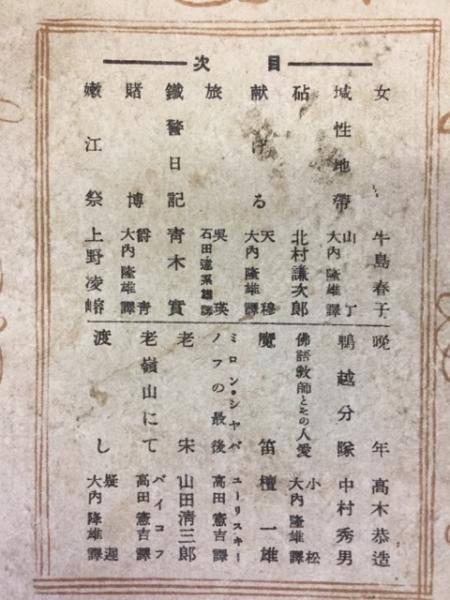 目次
女 牛島春子
域性地帶 山丁 大内隆雄譯
砧 北村謙次郎
献げる 天穆 大内隆雄譯
旅 吳瑛 石田達系雄譯
鐵警日記 青木實
賭博 爵青 大内隆雄譯
嫩江祭 上野凌嵱
晩年 高木恭造
鴨越分隊 中村秀男
佛語教師とその人愛 小松 大内隆雄譯
魔笛 檀一雄
ミロン・シャバノフの最後 ユーリスキー 高田憲吉譯
老宋 山田清三郎
老嶺山にて バイコフ 高田憲吉譯
渡し 疑遲 大内隆雄譯